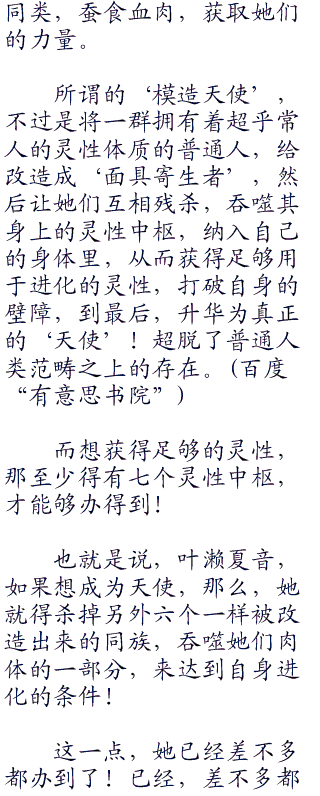 同类，蚕食血肉，获取她们
的力量。
所谓的‘模造天使’，
不过是将一群拥有着超乎常
人的灵性体质的普通人，给
改造成‘面具寄生者’，然
后让她们互相残杀，吞噬其
身上的灵性中枢，纳入自己
的身体里，从而获得足够用
于进化的灵性，打破自身的
壁障，到最后，升华为真正
的‘天使’！超脱了普通人
类范畴之上的存在。(百度
“有意思书院”)
而想获得足够的灵性，
那至少得有七个灵性中枢，
才能够办得到!
也就是说，叶濑夏音，
如果想成为天使，那么，她
就得杀掉另外六个一样被改
造出来的同族，吞噬她们肉
体的一部分，来达到自身进
化的条件!
这一点，她已经差不多
都办到了！已经，差不多都